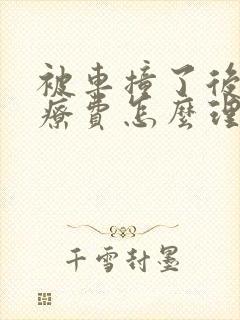 被車撞了後
療費怎麼理
千雪封墨